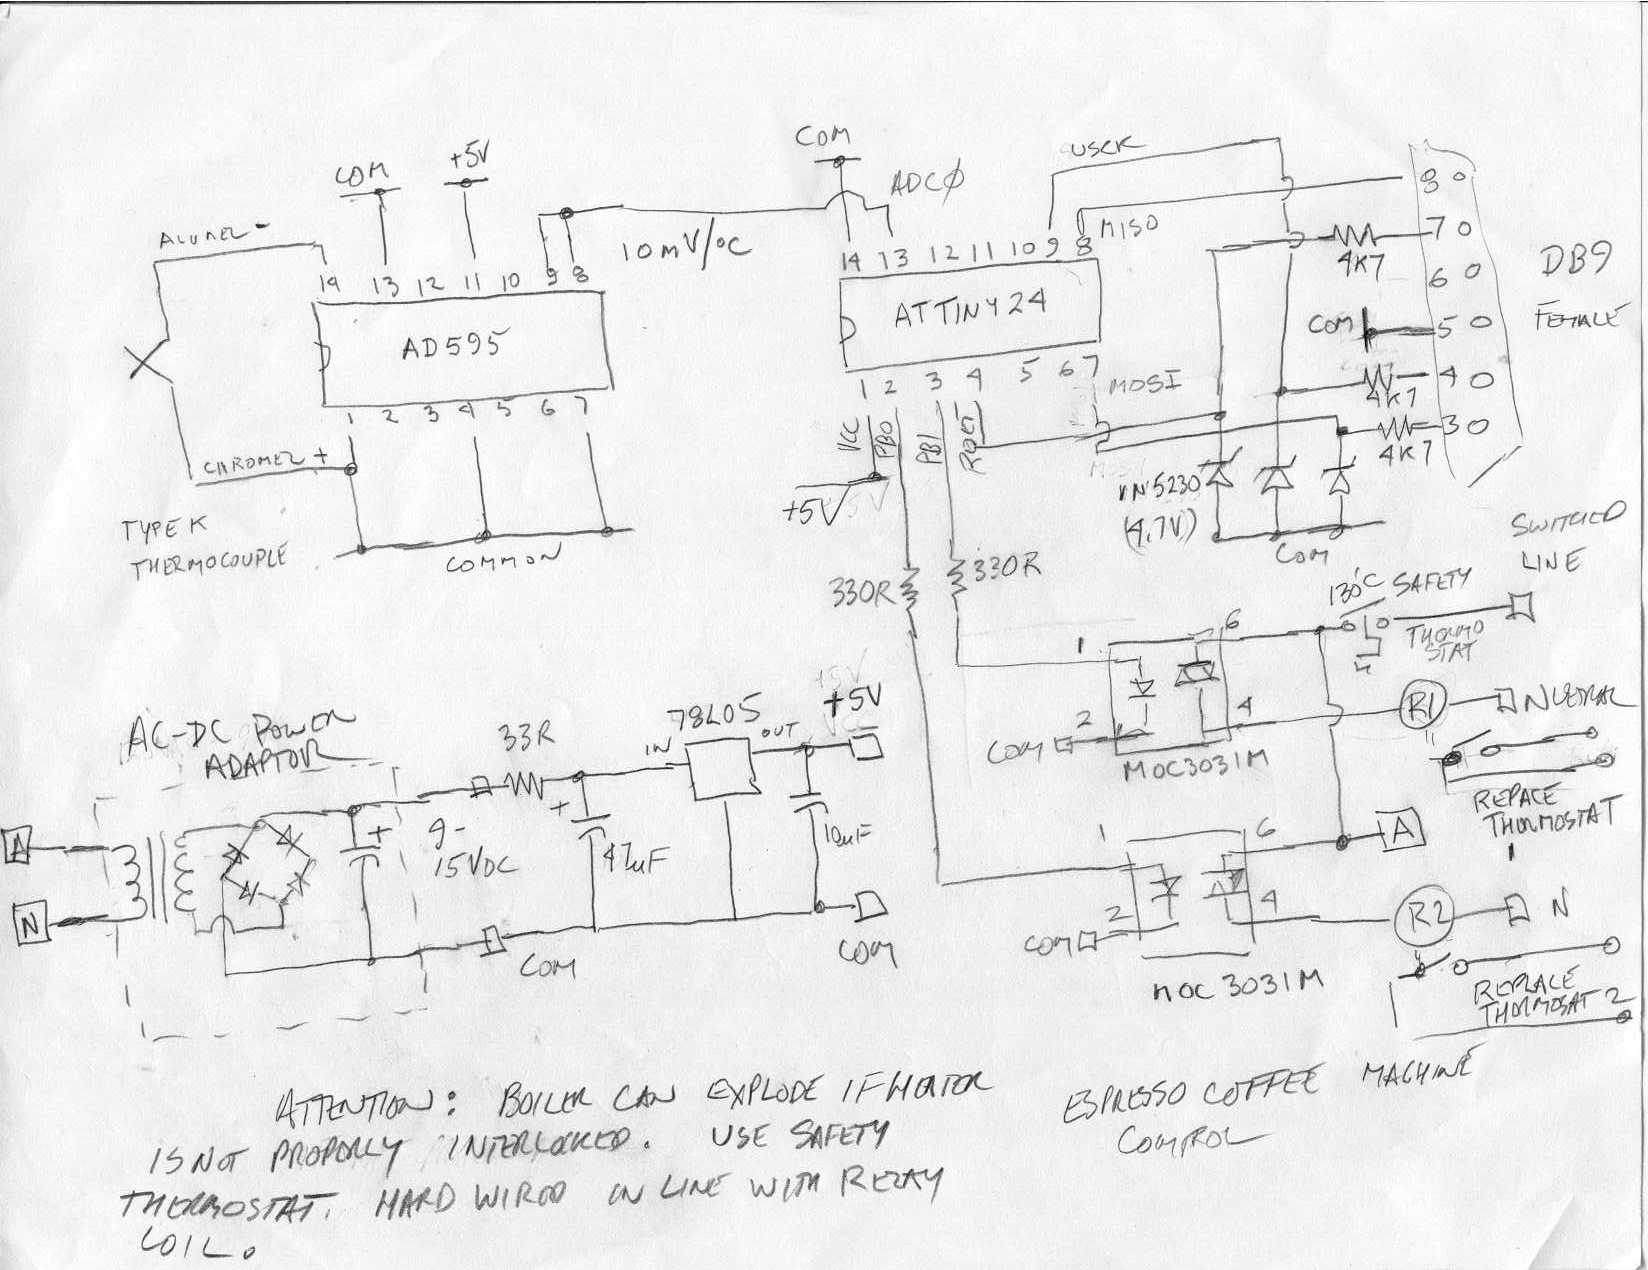 COM
+5V
ALUMEL -
14 13 12 11 10 9 8
AD595
1 2 3 4 5 6 7
CHROMEL +
TYPE K
THERMOCOUPLE
COMMON
10mV/°C
COM
ADCØ
USCK
MISO
14 13 12 11 10 9 8
ATTINY24
1 2 3 4 5 6 7
MOSI
VCC
PB0
PB1
+5V
330R
330R
8
7
4K7
6
COM
5
4
4K7
3
4K7
DB9
FEMALE
1N5230
(4.7V)
COM
SWITCHED
LINE
130°C SAFETY
THERMO
STAT
1
6
2
4
COM
MOC3031M
R1
NEUTRAL
REPACE
THERMOSTAT
1
A
1
6
2
4
COM
MOC3031M
R2
N
REPLACE
THERMOSAT 2
AC-DC POWER
ADAPTOR
A
N
+
9-
15VDC
33R
+
47uF
COM
78L05
IN
OUT
+5V
10uF
COM
ATTENTION: BOILER CAN EXPLODE IF HEATER
IS NOT PROPERLY INTERLOCKED. USE SAFETY
THERMOSTAT. HARD WIRED IN LINE WITH RELAY
COIL.
ESPRESSO COFFEE MACHINE
CONTROL